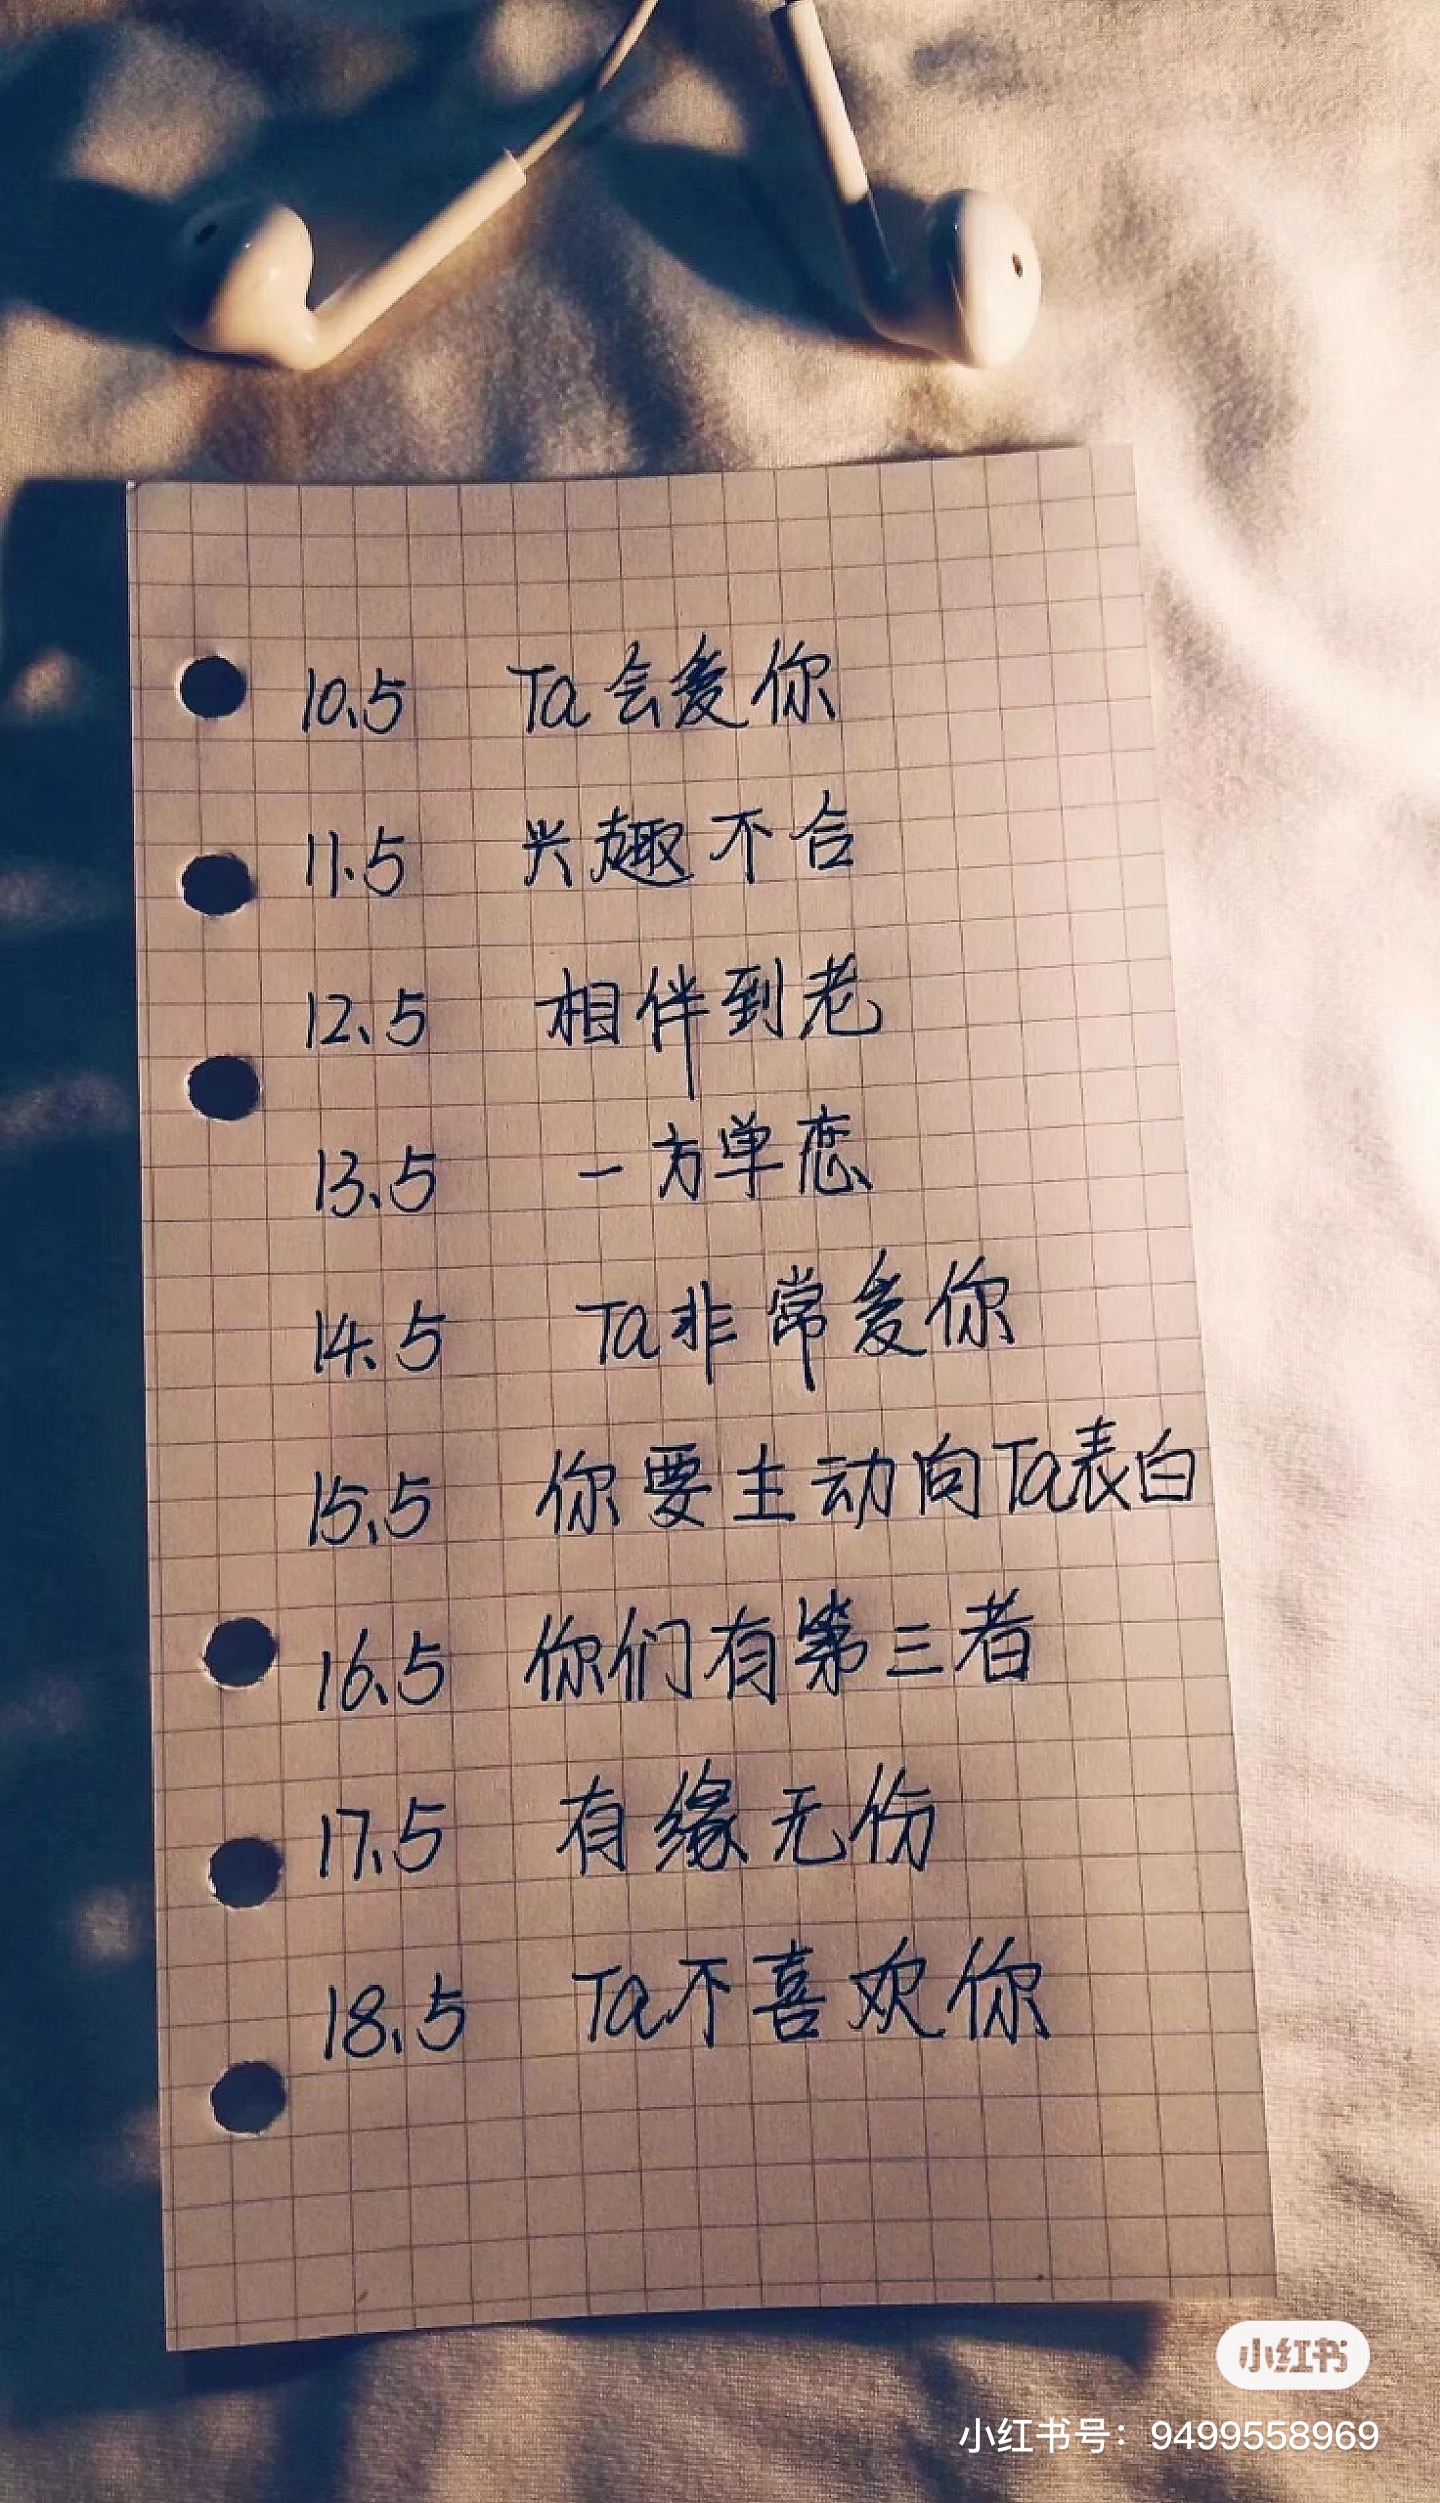 10.5 Ta会爱你
11.5 兴趣不合
12.5 相伴到老
13.5 一方单恋
14.5 Ta非常爱你
15.5 你要主动向Ta表白
16.5 你们有第三者
17.5 有缘无份
18.5 Ta不喜欢你
小红书
小红书号：9499558969